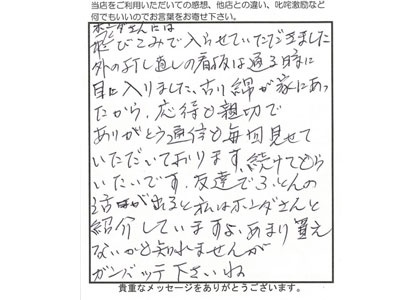 当店をご利用いただいての感想、他店との違い、叱咤激励など
何でもいいのでお言葉をお寄せ下さい。
ホンダさんには
飛びこみで入らせていただきました
外の打し直しの看板は通る時に
目に入りました、古い綿が家にあっ
たから、応待も親切で
ありがとう通信も毎回見せて
いただいております、続けてもら
いたいです、友達でふとんの
話が出ると私はホンダさんと
紹介していますよ、あまり買え
ないかも知れませんが
ガンバッテ下さいね
貴重なメッセージをありがとうございます。